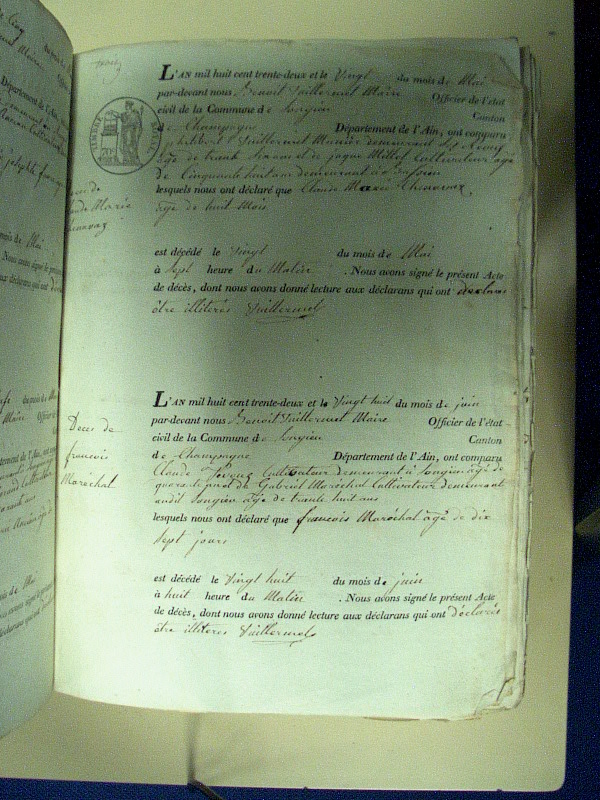 L'AN mil huit cent trente-deux et le Vingt du mois de Mai
par-devant nous Benoit Vuillermet Maire Officier de l'état
civil de la Commune de Songieu Canton
de Champagne Département de l'Ain, ont comparu
philibert Vuillermet Munier demeurant
age de trente et jaque Millet Cultivateur agé
de Cinquante huit ans demeurant a
lesquels nous ont déclaré que Claude Marie Chenavaz
âgé de huit Mois
est décédé le Vingt du mois de Mai
à Sept heure du Matin . Nous avons signé le présent Acte
de décès, dont nous avons donné lecture aux déclarans qui ont déclaré
etre illiterés Vuillermet
Deces de
françois
Maréchal
L'AN mil huit cent trente-deux et le Vingt huit du mois de juin
par-devant nous Benoit Vuillermet Maire Officier de l'état
civil de la Commune de Songieu Canton
de Champagne Département de l'Ain, ont comparu
Claude Cultivateur demeurant à Songieu âgé de
quarante et Gabriel Maréchal Cultivateur demeurant
audit Songieu âgé de trente huit ans
lesquels nous ont déclaré que françois Maréchal âgé de dix
Sept jours
est décédé le Vingt huit du mois de juin
à huit heure du Matin . Nous avons signé le présent Acte
de décès, dont nous avons donné lecture aux déclarans qui ont déclarés
etre illiterés Vuillermet